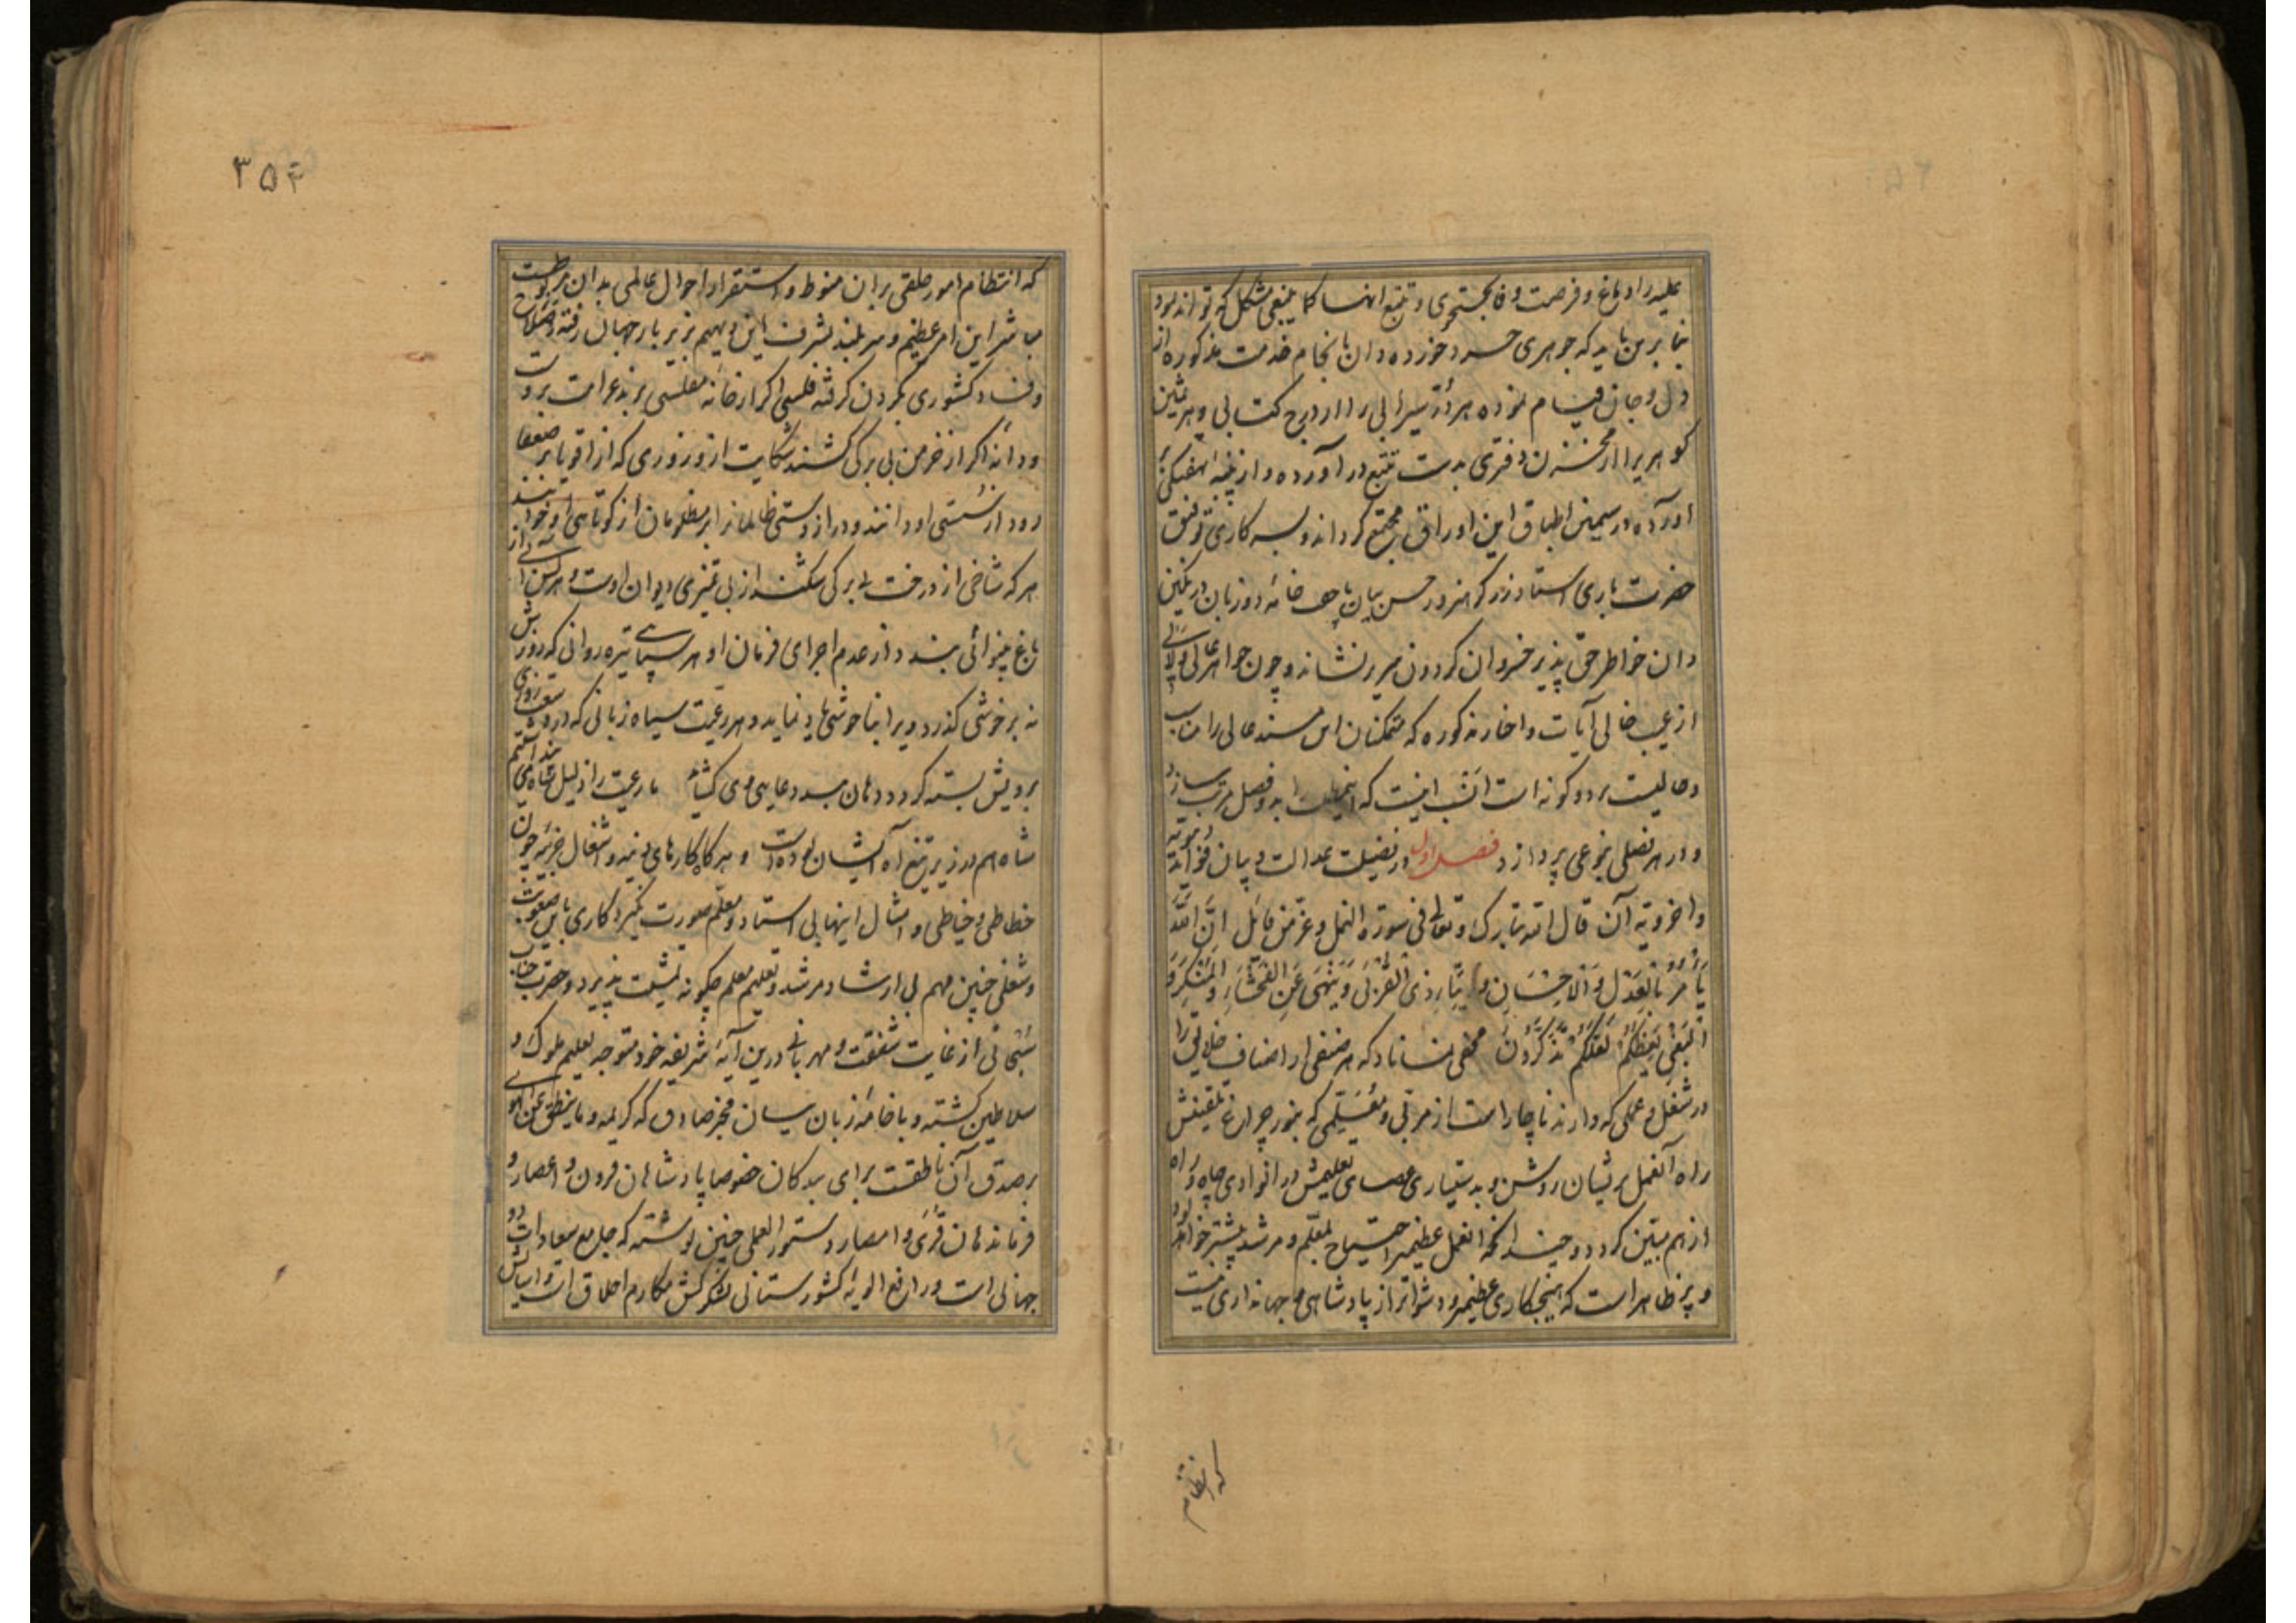 علیه را دماغ و فرصت وفا بجستجوی و تتبع انها کما ینبغی مشکل که تواند نمود
بنابرین باید که جوهری خرد خورده دان بانجام خدمت مذکوره از
دل و جان قیام نموده هر در سیرابی را از درج کتابی و هر ثمین
کوهریرا از مخزن دفتری بدست تتبع در آورده و از
آورده در سیمین اطباق این اوراق مجتمع کرداند و بسه کاری توفیق
حضرت باری استاد زرکر هنرور حسن بیان بلجی خانه دو زبان در نکین
دان خواطر حق پذیر خسروان کردون سریر نشاند و چون جواهر عالی ولالی
از عیب خالی آیات و اخبار مذکوره که متمکنان این مسند عالی را مناسب
و حالیست بر دو کونه است انسب اینست که بدو فصل مرتب سازد
و در هر فصلی بنوعی پردازد فصل اول در فضیلت عدالت و بیان فواید دنیویه
و اخرویه آن قال الله تبارک و تعالی فی سورة النحل و عز من قائل اِنَّ اللهَ
یَأمُرُ بِالعَدلِ وَالاِحسَانِ وَاِیتَاءِ ذِی القُربَی وَیَنهَی عَنِ الفَحشَاءِ وَالمُنکَرِ وَ
البَغیِ یَعِظُکُم لَعَلَّکُم تَذَکَّرُونَ مخفی نماناد که هر صنفی از اصناف خلایق را
در شغل و عملی که دارند ناچار است از مربی و معلمی که بنور چراغ تلقینش
راه آنعمل بریشان روشن و بدستیاری عصای تعلیمش در انوادی چاه و راه
از هم مبین کردد و چندانکه انعمل عظیمتر احتیاج بمعلم و مرشد بیشتر خواهد بود
و پر ظاهر است که هیچ کاری عظیمتر و دشوارتر از پادشاهی و جهانداری نیست
که انتظام
۳۵۴
که انتظام امور خلقی بران منوط و استقرار احوال عالمی بدان مربوطست
مباشر این امر عظیم و سربلند بشرف این دیهیم بزیر بار جهان رفته و صلاح
و فساد کشوری بکردن کرفته فلسی اکر از خانه مفلسی برند غرامت بروست
و دانه اکر از خرمن بی برکی کشند شکایت ازو زوری که از اقویا بر ضعفا
رود از سستی او دانند و دراز دستی ظالمانرا بر مظلومان از کوتاهی او خوانند
هرکه شاخی از درخت بی برکی شکند از بی تمیزی دیوان اوست و هر کس از
باغ بینوائی بیند از عدم اجرای فرمان او هر سپاهی تیره روانی که روزش
نه بر خوشی کذرد ویرا بناخوشی یاد نماید و هر رعیت سیاه زبانی که در روزی
برویش بسته کردد دهان بسد دعای وی کشاید رعیت را ذلیل شاه می
شاه هم در زیر تیغ آه ایشان بوده است و هر کاه کارهای دنیه و اشغال جزئیه چون
خطاطی و خیاطی و امثال اینها بی استاد و معلم صورت نکیرد کاری باین صعوبت
و شغلی چنین مهم بی ارشاد مرشد و تعلیم معلم چکونه تمشیت پذیرد و حضرت جناب
سبحانی از غایت شفقت و مهربانی درین آیه شریفه خود متوجه تعلیم ملوک و
سلاطین کشته و با خامه زبان بیان مخبر صادق که کریمه و ما ینطق عن الهوی
بر صدق آن ناطقست برای بندکان خصوصا پادشاهان قرون و اعصار و
فرماندهان قری و امصار دستور العملی چنین نوشته که جامع سعادات دو
جهانی است و رافع الویه کشورستانی لشکرکش مکارم اخلاق است و